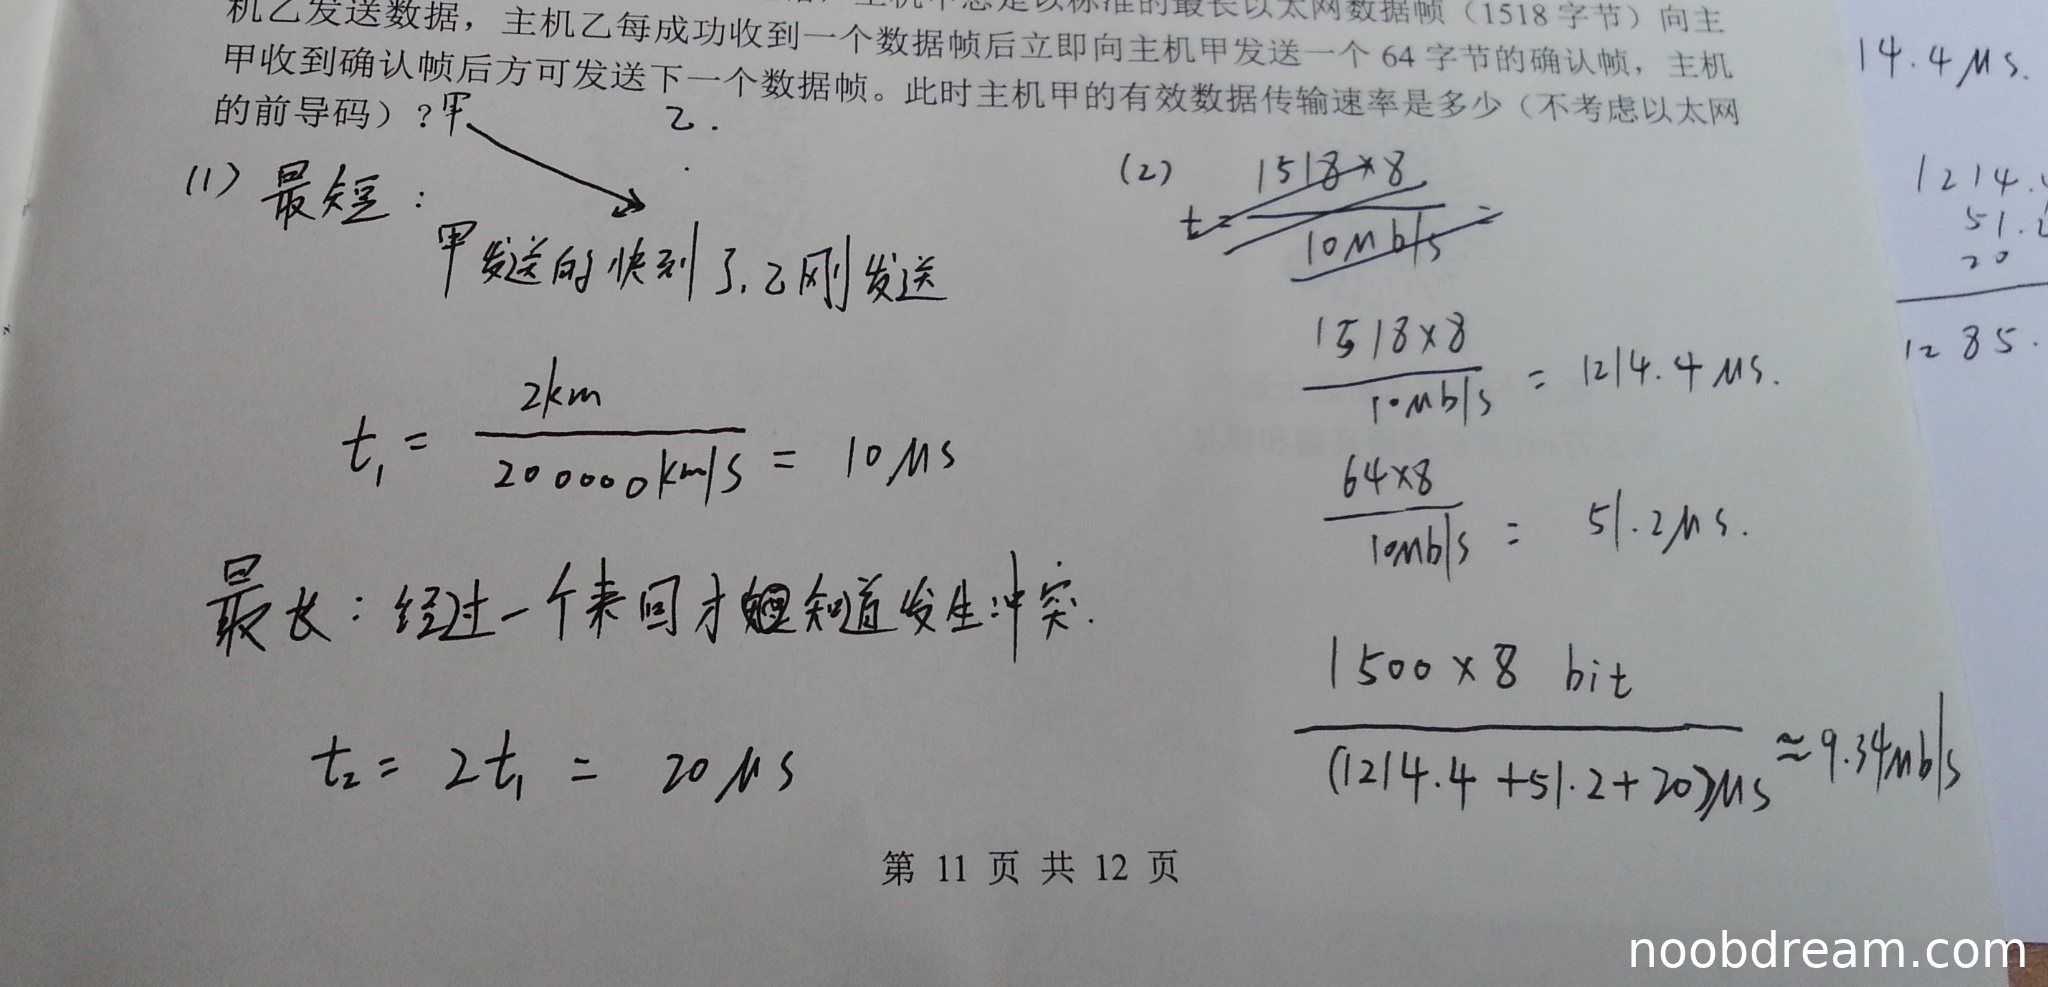 主机甲总是以标准的最长以太网数据帧（1518 字节）向主
机乙发送数据，主机乙每成功收到一个数据帧后立即向主机甲发送一个 64 字节的确认帧，主机
甲收到确认帧后方可发送下一个数据帧。此时主机甲的有效数据传输速率是多少（不考虑以太网
的前导码）?
甲 乙.
(1) 最短：
甲发送的快到了,乙刚发送
t₁ = 2km / 200000km/s = 10μs
最长：经过一个来回才知道发生冲突.
t₂ = 2t₁ = 20μs
(2) t = 1518×8 / 10Mb/s =
1518×8 / 10Mb/s = 1214.4μs.
64×8 / 10Mb/s = 51.2μs.
1500×8 bit / (1214.4+51.2+20)μs ≈ 9.34Mb/s
14.4μs.
1214.
51.2
20
1285.
第 11 页 共 12 页
noobdream.com